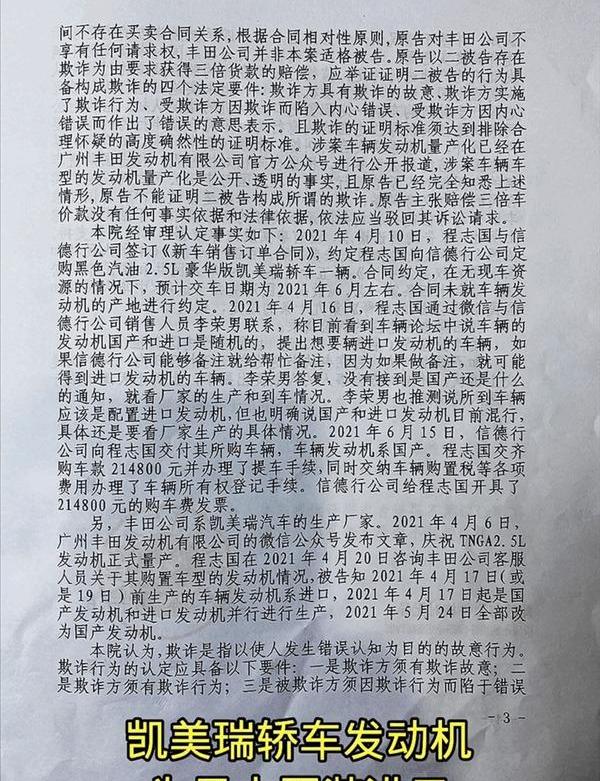 间不存在买卖合同关系,根据合同相对性原则,原告对丰田公司不
享有任何请求权,丰田公司并非本案适格被告。原告以二被告存在
欺诈为由要求获得三倍货款的赔偿,应举证证明二被告的行为具
备构成欺诈的四个法定要件:欺诈方具有欺诈的故意、欺诈方实施
了欺诈行为、受欺诈方因欺诈而陷入内心错误、受欺诈方因内心
错误而作出了错误的意思表示。且欺诈的证明标准须达到排除合
理怀疑的高度确然性的证明标准。涉案车辆发动机量产化已经在
广州丰田发动机有限公司官方公众号进行公开报道,涉案车辆车
型的发动机量产化是公开、透明的事实,且原告已经完全知悉上述
情形,原告不能证明二被告构成所谓的欺诈。原告主张赔偿三倍车
价款没有任何事实依据和法律依据,依法应当驳回其诉讼请求。
本院经审理认定事实如下:2021年4月10日,程志国与信
德行公司签订《新车销售订单合同》,约定程志国向信德行公司定
购黑色汽油2.5L豪华版凯美瑞轿车一辆。合同约定,在无现车资
源的情况下,预计交车日期为2021年6月左右。合同未就车辆发
动机的产地进行约定。2021年4月16日,程志国通过微信与信
德行公司销售人员李荣男联系,称目前看到车辆论坛中说车辆的
发动机国产和进口是随机的,提出想要辆进口发动机的车辆,如
果信德行公司能够备注就给帮忙备注,因为如果做备注,就可能
得到进口发动机的车辆。李荣男答复,没有接到是国产还是什么
的通知,就看厂家的生产和到车情况。李荣男也推测说所到车辆
应该是配置进口发动机,但也明确说国产和进口发动机目前混行,
具体还是要看厂家生产的具体情况。2021年6月15日,信德行公
司向程志国交付其所购车辆,车辆发动机系国产。程志国交齐
购车款214800元并办理了提车手续,同时交纳车辆购置税等各项
费用办理了车辆所有权登记手续。信德行公司给程志国开具了
214800元的购车费发票。
另,丰田公司系凯美瑞汽车的生产厂家。2021年4月6日,
广州丰田发动机有限公司的微信公众号发布文章,庆祝TNGA2.5L
发动机正式量产。程志国在2021年4月20日咨询丰田公司客服
人员关于其购置车型的发动机情况,被告知2021年4月17日(或
是19日)前生产的车辆发动机系进口,2021年4月17日起是国
产发动机和进口发动机并行进行生产,2021年5月24日全部改
为国产发动机。
本院认为,欺诈是指以使人发生错误认知为目的的故意行为。
欺诈行为的认定应具备以下要件:一是欺诈方须有欺诈故意;二
是欺诈方须有欺诈行为;三是被欺诈方须因欺诈行为而陷于错误
- 3 -
凯美瑞轿车发动机